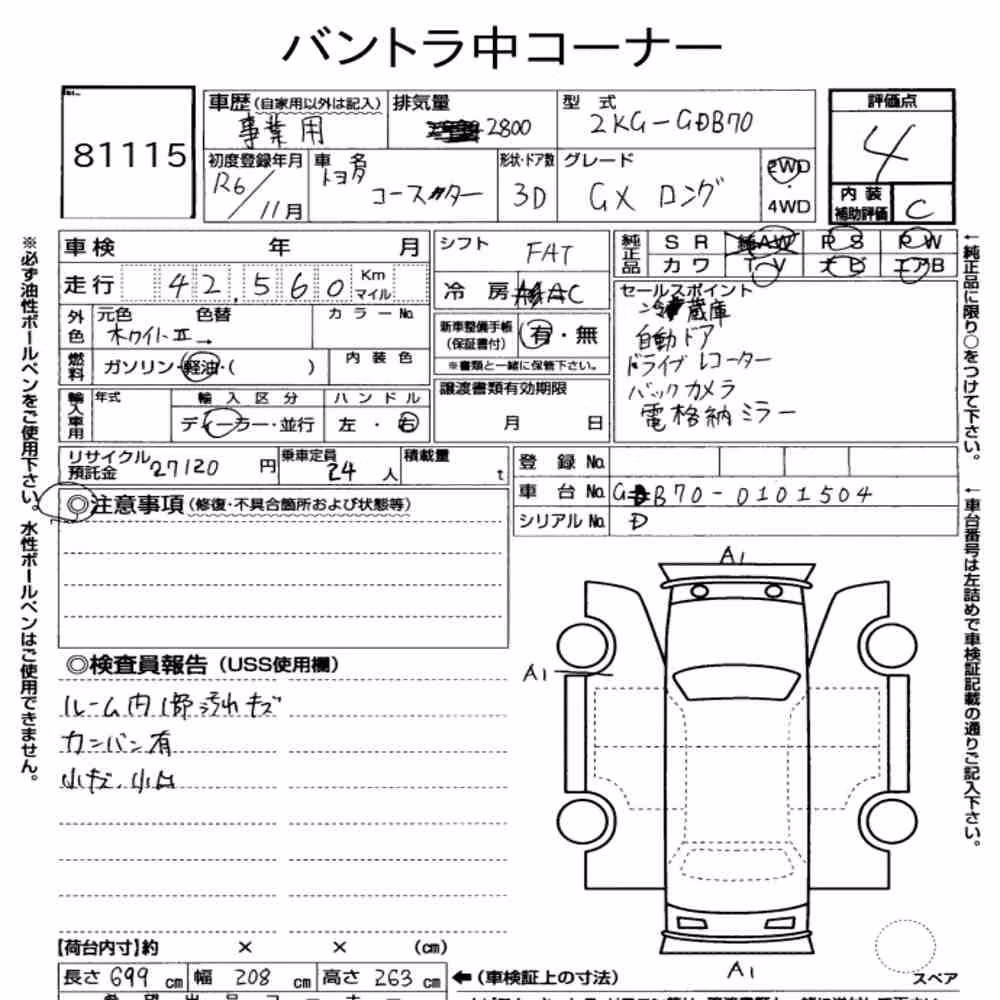 バントラ中コーナー
81115
車歴 (自家用以外は記入) 事業用
排気量 2800
型式 2KG-GDB70
評価点 4
内装補助評価 C
初度登録年月 R6/11月
車名 トヨタ コースター
形状・ドア数 3D
グレード GX ロング
2WD・4WD
車検 年 月
走行 42,560 Km マイル
外色 元色 色替 カラーNo.
ホワイトⅡ→
燃料 ガソリン・軽油・( ) 内装色
輸入車用 年式 輸入区分 ハンドル
ディーラー・並行 左・右
シフト FAT
冷房 AC
新車整備手帳(保証書付) 有・無
※書類と一緒に保管下さい。
譲渡書類有効期限
月 日
純正品 SR 純AW PS PW
カワ TV ナビ エアB
セールスポイント
冷蔵庫
自動ドア
ドライブレコーター
バックカメラ
電格納ミラー
リサイクル預託金 27120円
乗車定員 24人
積載量 t
登録No.
車台No. GDB70-0101504
シリアルNo. D
◎注意事項(修復・不具合箇所および状態等)
◎検査員報告(USS使用欄)
ルーム内1部汚れキズ
カンバン有
小キズ.小凹
A1
A1
A1
スペア
【荷台内寸】約 × × (cm)
長さ 699 cm 幅 208 cm 高さ 263 cm
←(車検証上の寸法)
※必ず油性ボールペンをご使用下さい。水性ボールペンはご使用できません。
←純正品に限り○をつけて下さい。
←車台番号は左詰めで車検証記載の通りご記入下さい。